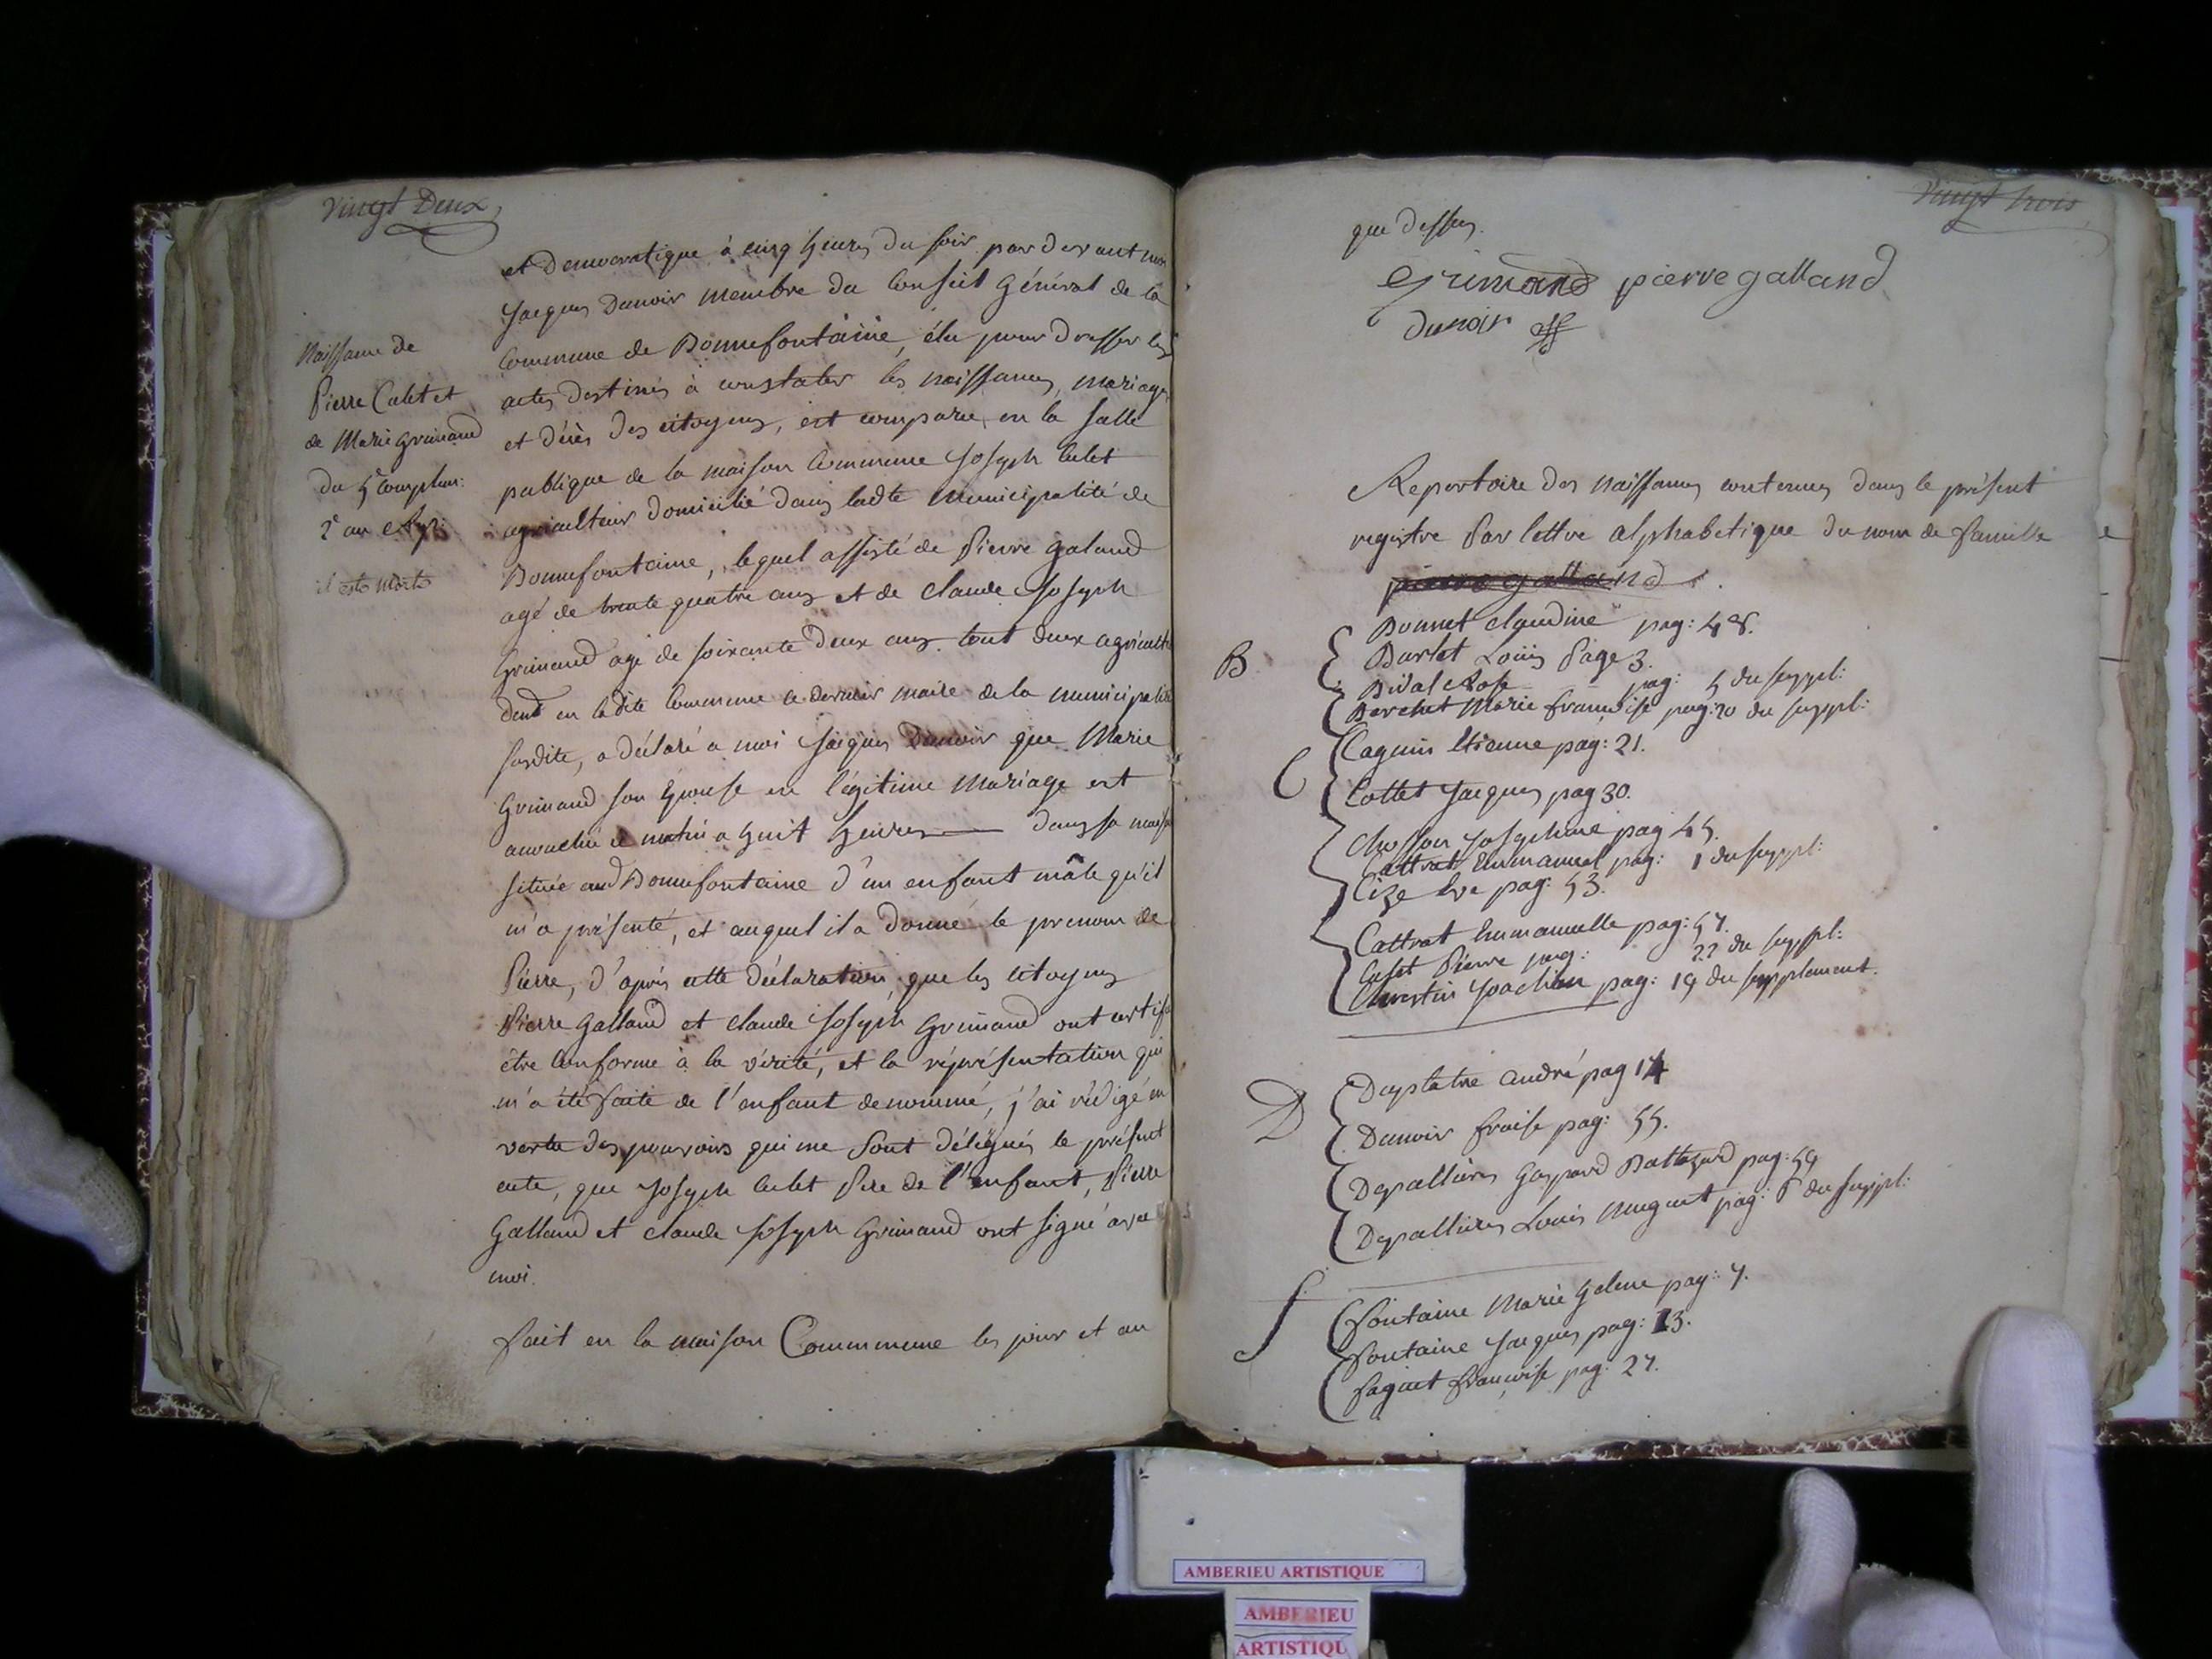 Vingt Deux
et democratique à cinq heures du soir par devant moi
Jacques Dunoir membre du Conseil Général de la
Commune de Bonnefontaine, élu pour dresser les
actes destinés à constater les naissances, mariages
et décès des citoyens, est comparu en la salle
publique de la maison Commune Joseph Culet
agriculteur domicilié dans ladte municipalité de
Bonnefontaine, lequel assisté de Pierre Galand
agé de trente quatre ans et de Claude Joseph
Grimand agé de soixante deux ans tout deux agricult
dent en ladite Commune ce dernier maire de la municipalité
susdite, a déclaré a moi Jacques Dunoir que Marie
Grimand son Epouse en légitime Mariage est
accouchée ce matin a huit heures dans sa maison
située aud Bonnefontaine d'un enfant mâle qu'il
m'a présenté, et auquel il a donné le prenom de
Pierre, d'après cette déclaration, que les citoyens
Pierre Galland et Claude Joseph Grimand ont certifié
être conforme à la vérité, et la réprésentation qui
m'a été faite de l'enfant denommé, j'ai rédigé en
vertu des pouvoirs qui me sont délégués le présent
acte, que Joseph Culet Pere de l'enfant, Pierre
Galland et Claude Joseph Grimand ont signé avec
moi.
fait en la maison Commune les jour et an
Naissance de
Pierre Culet et
de Marie Grimand
du 5e Complem:
2e an
il est mort
Vingt trois
que dessus.
Grimand pierre galland
dunoir
Repertoire des naissances contenues dans le présent
registre Par lettre alphabetique du nom de famille
pierre galland
B
Bonnet Claudine pag: 48.
Barlet Loüis Page 3.
Bidal Rose pag: 5 du suppl:
Berchet Marie françoise pag: 20 du suppl:
C
Caguin Etienne pag: 21.
Cottet Jacques pag 30.
Chosson Josephine pag 45.
Cattrat Emmanuel pag: 1 du suppl:
Cize Eve pag: 53.
Cattrat Emmanuelle pag: 57.
Culet Pierre pag: 22 du suppl:
Chrestin Joachin pag: 19 du supplement.
D
Duplatre André pag 14
Dunoir fraise pag: 55.
Depallieres Gaspard Baltazard pag: 59
Depallieres Louis Muguet pag: 8 du suppl:
f
Fontaine Marie Helene pag: 7.
Fontaine Jacques pag: 13.
Faguet Françoise pag: 27.
AMBERIEU ARTISTIQUE
AMBERIEU
ARTISTIQU